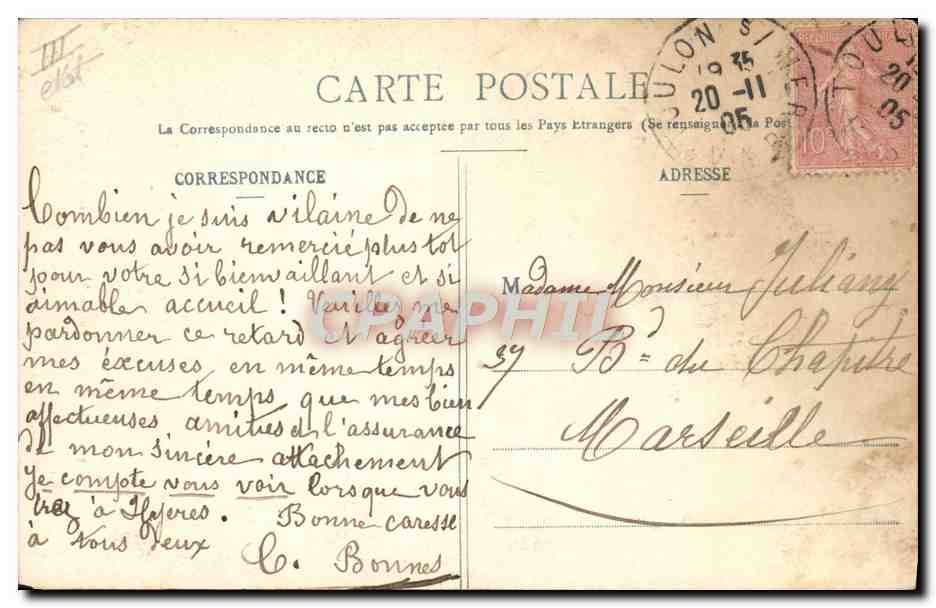 III
CARTE POSTALE
La Correspondance au recto n'est pas acceptée par tous les Pays Etrangers (Se renseigner à la Post
CORRESPONDANCE
Combien je suis vilaine de ne
pas vous avoir remercié plus tot
pour votre si bienvaillant et si
aimable accueil ! Veuillez me
pardonner ce retard et agréer
mes éxcuses en même temps
en même temps que mes bien
affectueuses amitiés et l'assurance
de mon sincère attachement
Je compte vous voir lorsque vous
irez à Hyeres. Bonne caresse
à vous deux
C. Bonnes
ADRESSE
Madame Monsieur Juliany
37 Bd du Chapitre
Marseille
TOULON S/MER
20-11
05
TOUL
20
05
10
CPAPHIL